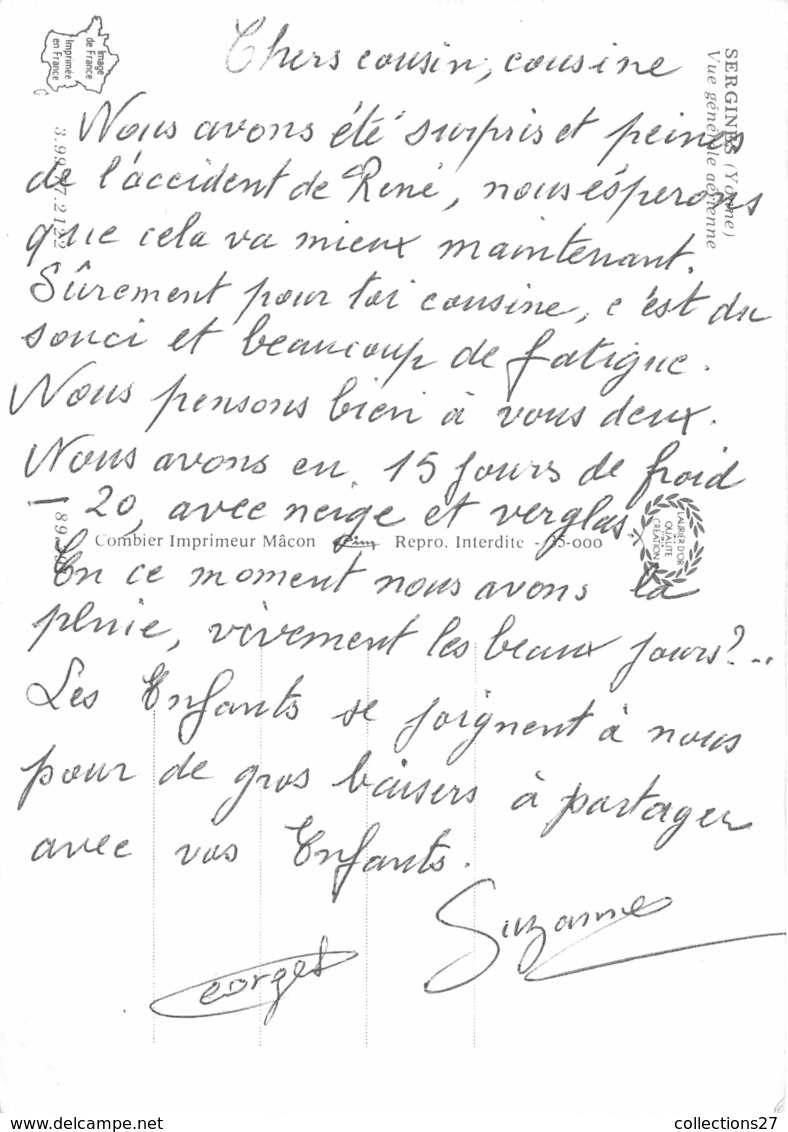 Chers cousin, cousine
Nous avons été surpris et peinés
de l'accident de René, nous ésperons
que cela va mieux maintenant.
Sûrement pour toi cousine, c'est du
souci et beaucoup de fatigue.
Nous pensons bien à vous deux.
Nous avons eu 15 jours de froid
- 20, avec neige et verglas.
En ce moment nous avons la
pluie, vivement les beaux jours?..
Les Enfants se joignent à nous
pour de gros baisers à partager
avec vos Enfants.
Suzanne
Georges
Image
de France
Imprimée
en France
SERGINES (Yonne)
Vue générale aérienne
Combier Imprimeur Mâcon
Cim
Repro. Interdite -
LAURIER D'OR
QUALITÉ
CRÉATION
collections27